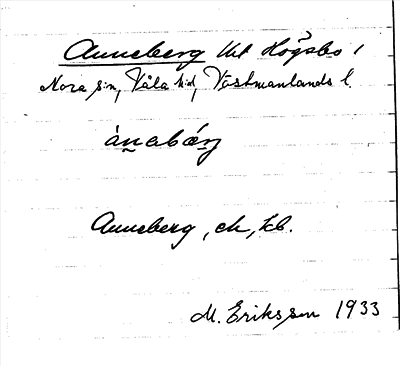 Anneberg lht Högsbo 1
Nora sn, Våla hd, Västmanlands l.
ànabárj
Anneberg, ek, kb.
M. Eriksson 1933